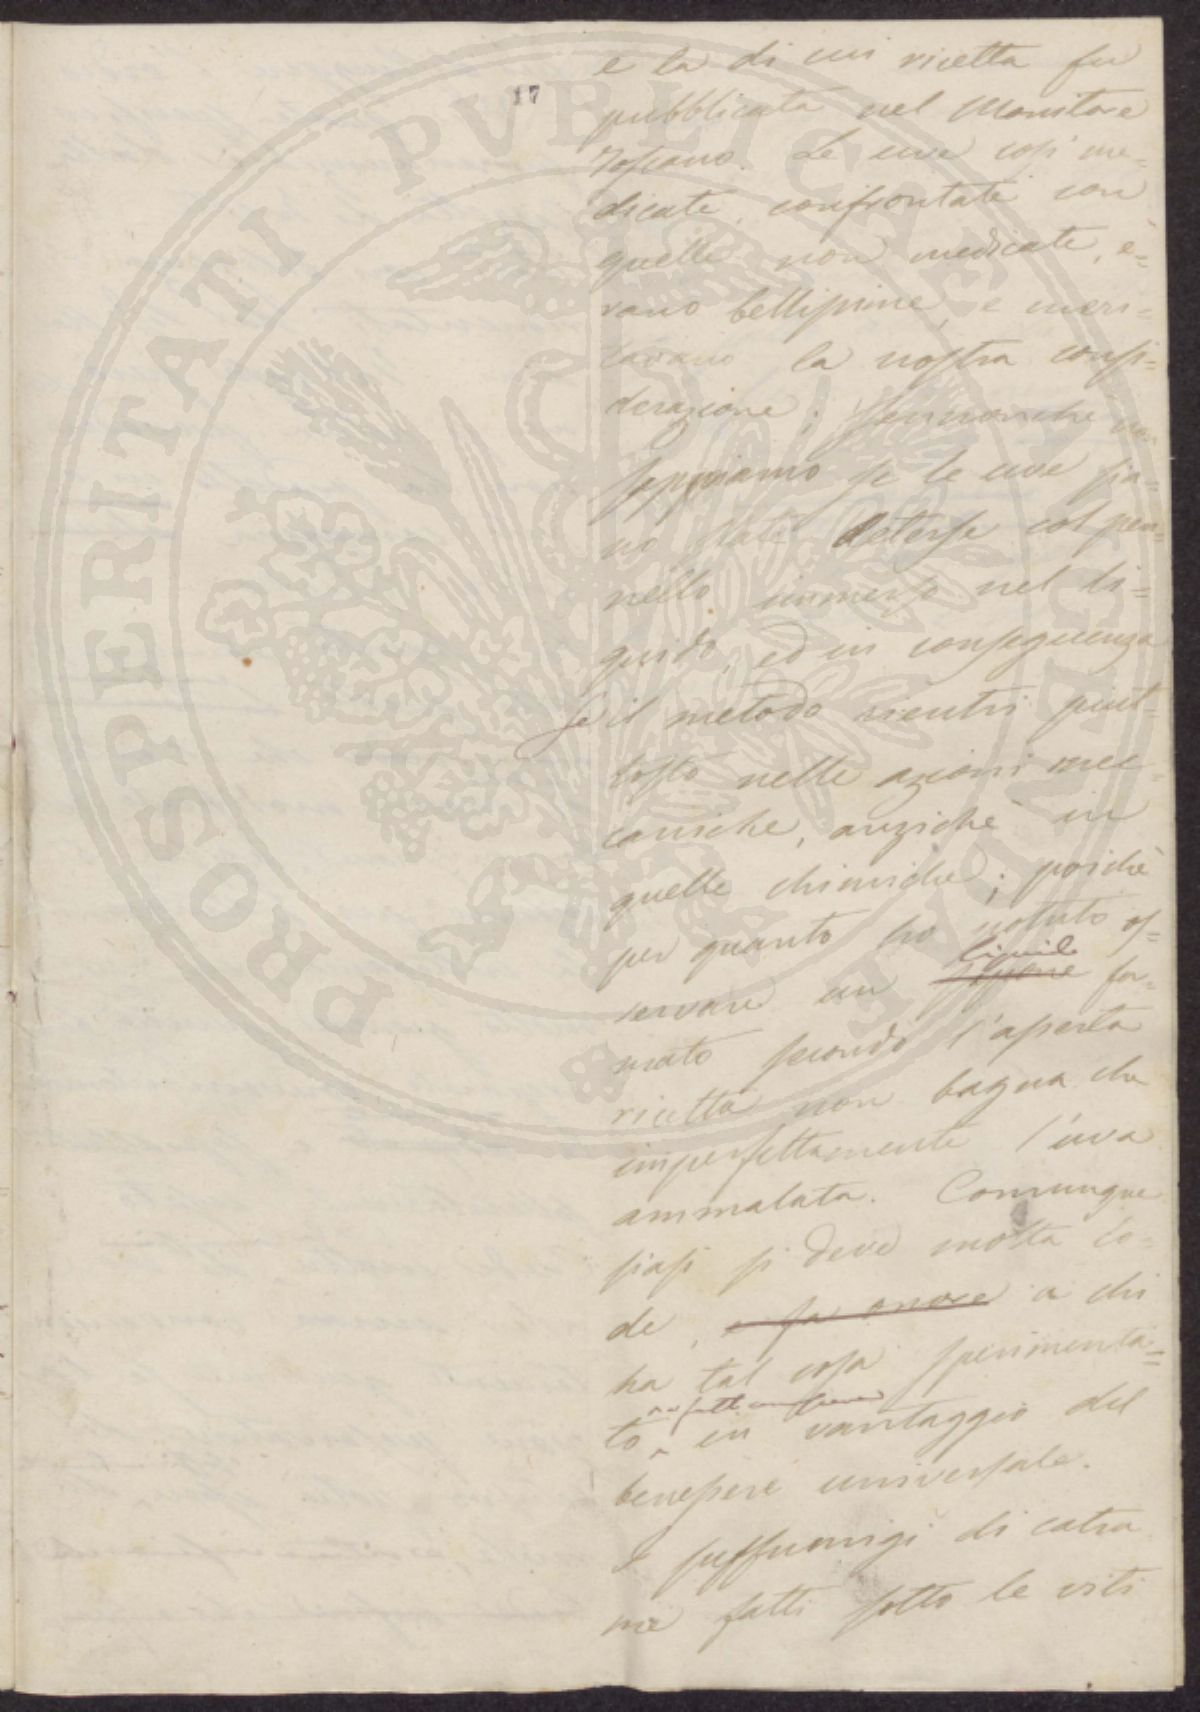 17
e la di cui ricetta fu
pubblicata nel Monitore
Toscano. Le uve così me=
dicate, confrontate con
quelle non medicate, e=
rano bellissime, e meri=
tavano la nostra consi=
derazione; sennonche non
sappiamo se le uve sia=
no state deterse col pen=
nello immerso nel li=
quido, ed in conseguenza
se il metodo rientri piut=
tosto nelle azioni mec=
caniche, anzichè in
quelle chimiche; poichè
per quanto ho potuto os=
liquido
servare un sapone for=
mato secondo l'aperta
ricetta non bagna che
imperfettamente l'uva
ammalata. Comunque
siasi si deve molta lo=
de, e fa onore a chi
ha tal cosa sperimenta=
to in vantaggio del
benessere universale.
I suffumigi di catra
me fatti sotto le viti
PROSPERITATI PVBLICAE AVGENDAE